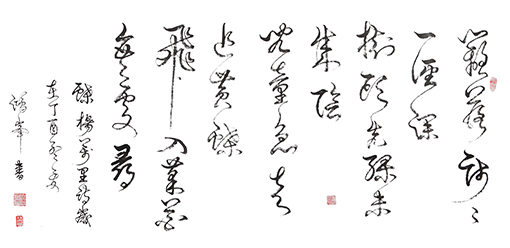 籬落疎々
一徑深
樹頭先綠未
成陰
兒童急走
追黃蝶
飛入菜花
無處尋
錄楊萬里詩歲
在丁酉
峯書